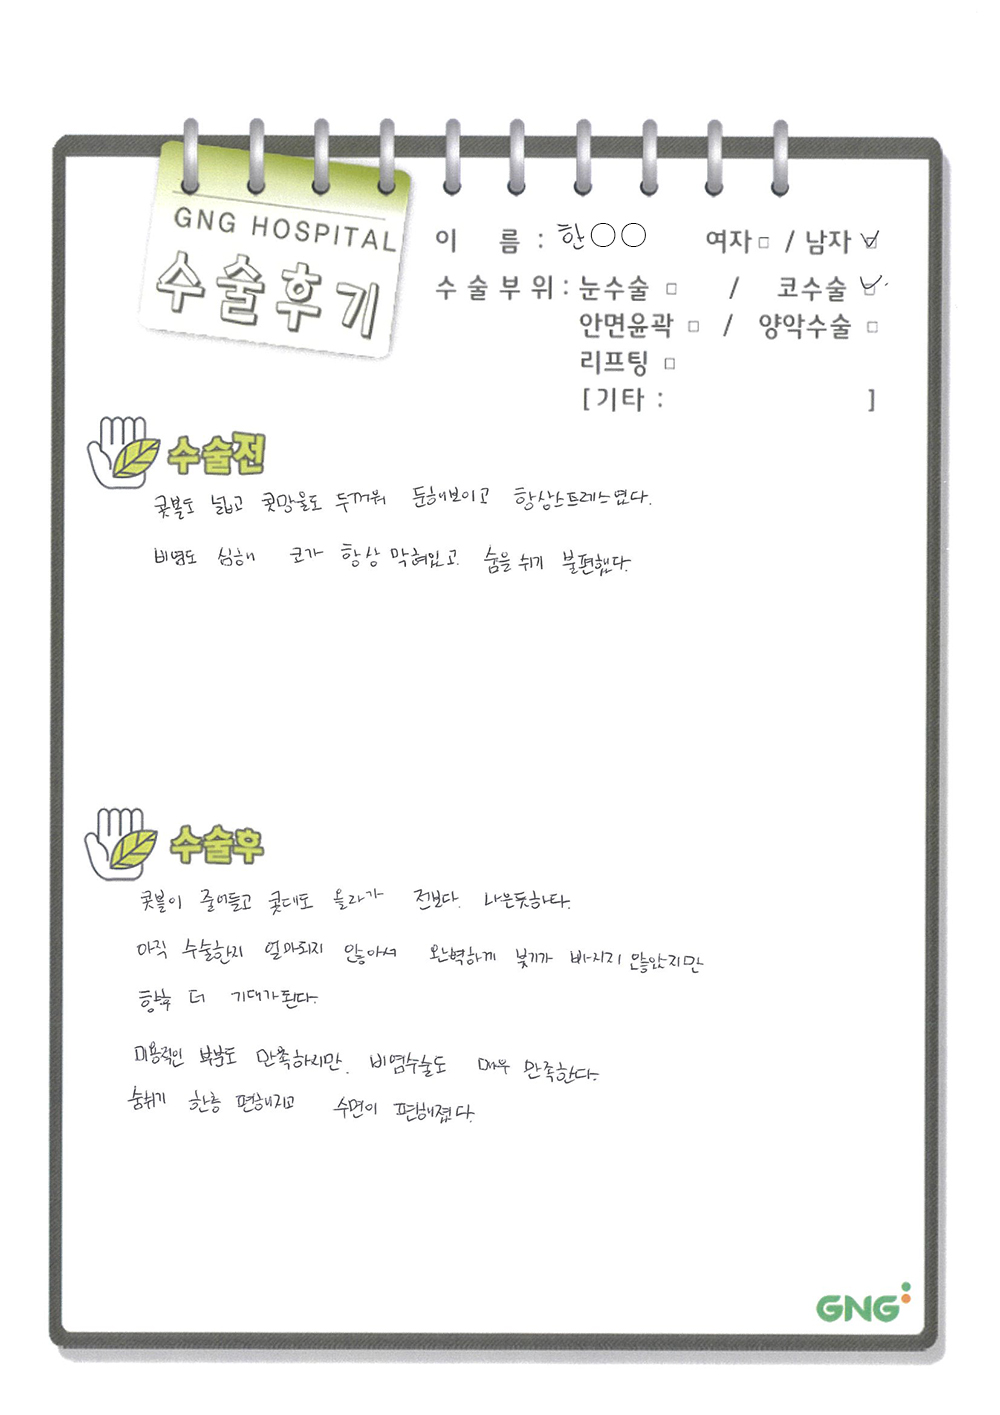 GNG HOSPITAL
수술후기
이 름 : 한○○ 여자 □ / 남자 ☑
수술부위 : 눈수술 □ / 코수술 ☑
안면윤곽 □ / 양악수술 □
리프팅 □
[기타 : ]
수술전
콧볼도 넓고 콧망울도 두꺼워 둔해보이고 항상스트레스였다.
비염도 심해 코가 항상 막혀있고. 숨을 쉬기 불편했다.
수술후
콧볼이 줄어들고 콧대도 올라가 전보다. 나은듯하다.
아직 수술한지 얼마되지 않아서 완벽하게 붓기가 빠지지 않았지만
향후 더 기대가된다.
미용적인 부분도 만족하지만. 비염수술도 매우 만족한다.
숨쉬기 한층 편해지고 수면이 편해졌다.
GNG